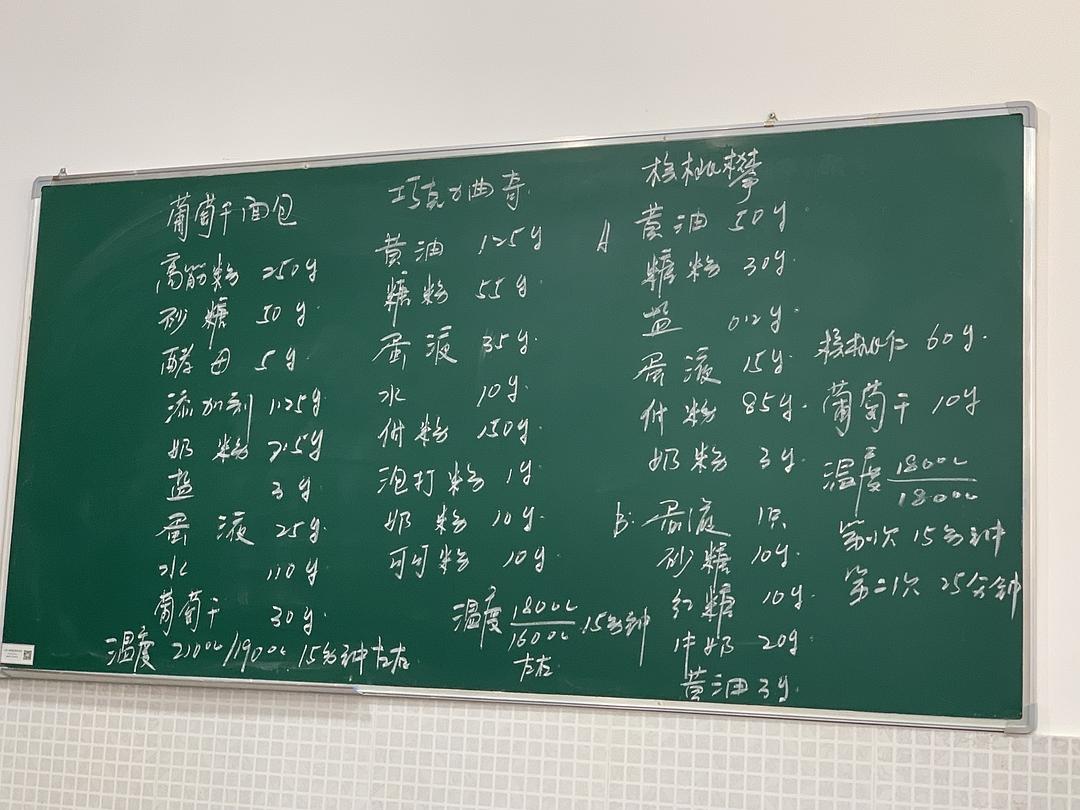 葡萄干面包
高筋粉 250g
砂糖 50g
酵母 5g
添加剂 1.25g
奶粉 7.5g
盐 3g
蛋液 25g
水 110g
葡萄干 30g
温度 210℃/190℃ 15分钟左右
巧克力曲奇
黄油 125g
糖粉 55g
蛋液 35g
水 10g
低粉 150g
泡打粉 1g
奶粉 10g
可可粉 10g
温度 180℃/160℃ 15分钟
左右
核桃攀
A 黄油 50g
糖粉 30g
盐 0.2g
蛋液 15g
低粉 85g
奶粉 3g
B: 蛋液 1只
砂糖 10g
红糖 10g
牛奶 20g
黄油 3g
核桃仁 60g
葡萄干 10g
温度 180℃/180℃
第一次 15分钟
第二次 25分钟